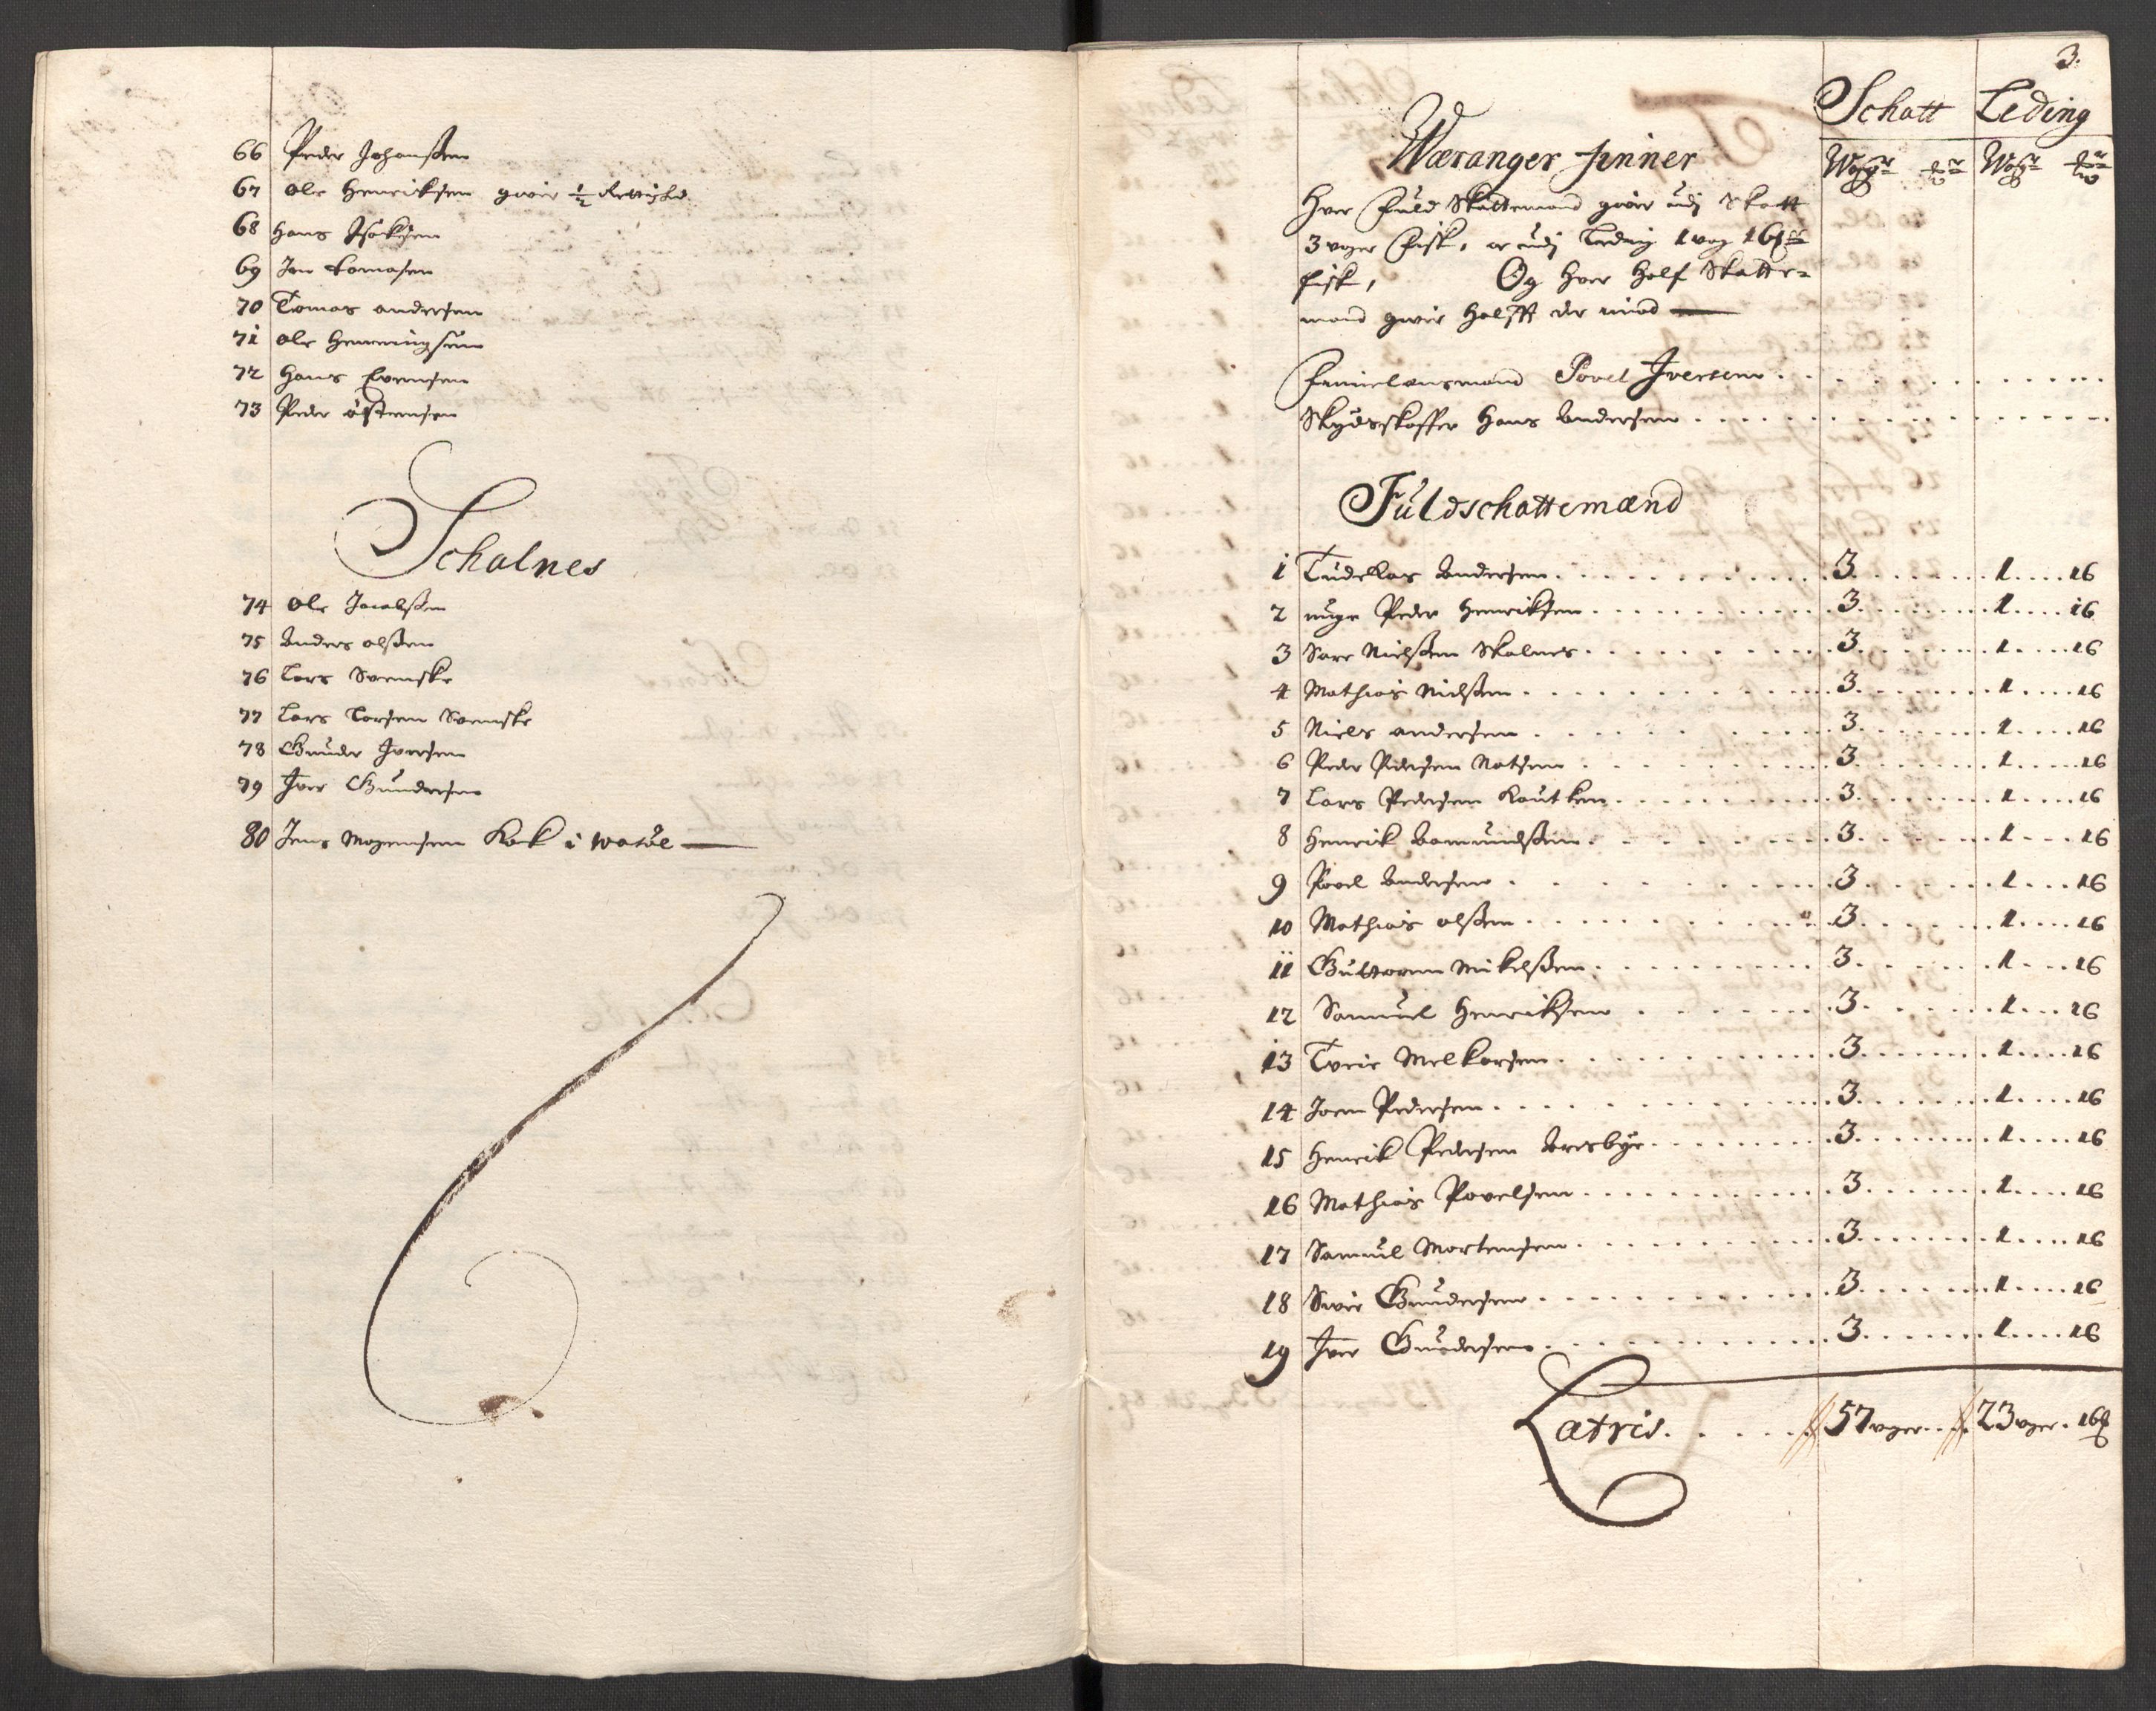 66 Peder Johanßen
67 Ole Henricksen gwir 1/2 Rettighd.
68 Hans Isaksen
69 Jon Tomasen
70 Tomas andersen
71 Ole Henningsen
72 Hans Evensen
73 Peder östensen
Schalnes
74 Ole Jacobßen
75 Anders olßen
76 Lars Svenske
77 Lars Larsen Svenske
78 Gunder Iversen
79 Iver Gundersen
80 Jens Mogensen Kock i wadöe
3.
Schatt Leding
Wæranger finner
Woger Woger
Hver Fuld Skattemand gwir udj Skatt
3 voger Fisk, er udj Leding 1 vog 16
fisk, Og hver Half Skatte-
mand gwir Halfft der imod
Finnelensmand Povel Iversen
Skydsskaffer Hans Andersen
Fuldschattemænd
1 Andersen 3 1 16
2 unge Peder Henriksen 3 1 16
3 Sare Nielßen Skalnes 3 1 16
4 Mathias Nielßen 3 1 16
5 Niels andersen 3 1 16
6 Peder Pedersen Natsen 3 1 16
7 Lars Pedersen Kautken 3 1 16
8 Henrick Aamundßen 3 1 16
9 Povel Andersen 3 1 16
10 Mathias olßen 3 1 16
11 Guttorm Mikelßen 3 1 16
12 Samuel Henriksen 3 1 16
13 Melkersen 3 1 16
14 Joen Pedersen 3 1 16
15 Henrick Pedersen 3 1 16
16 Mathias Povelsen 3 1 16
17 Samuel Mortensen 3 1 16
18 Gundersen 3 1 16
19 Iver Gundersen 3 1 16
Latris 57 voger 23 voger 16